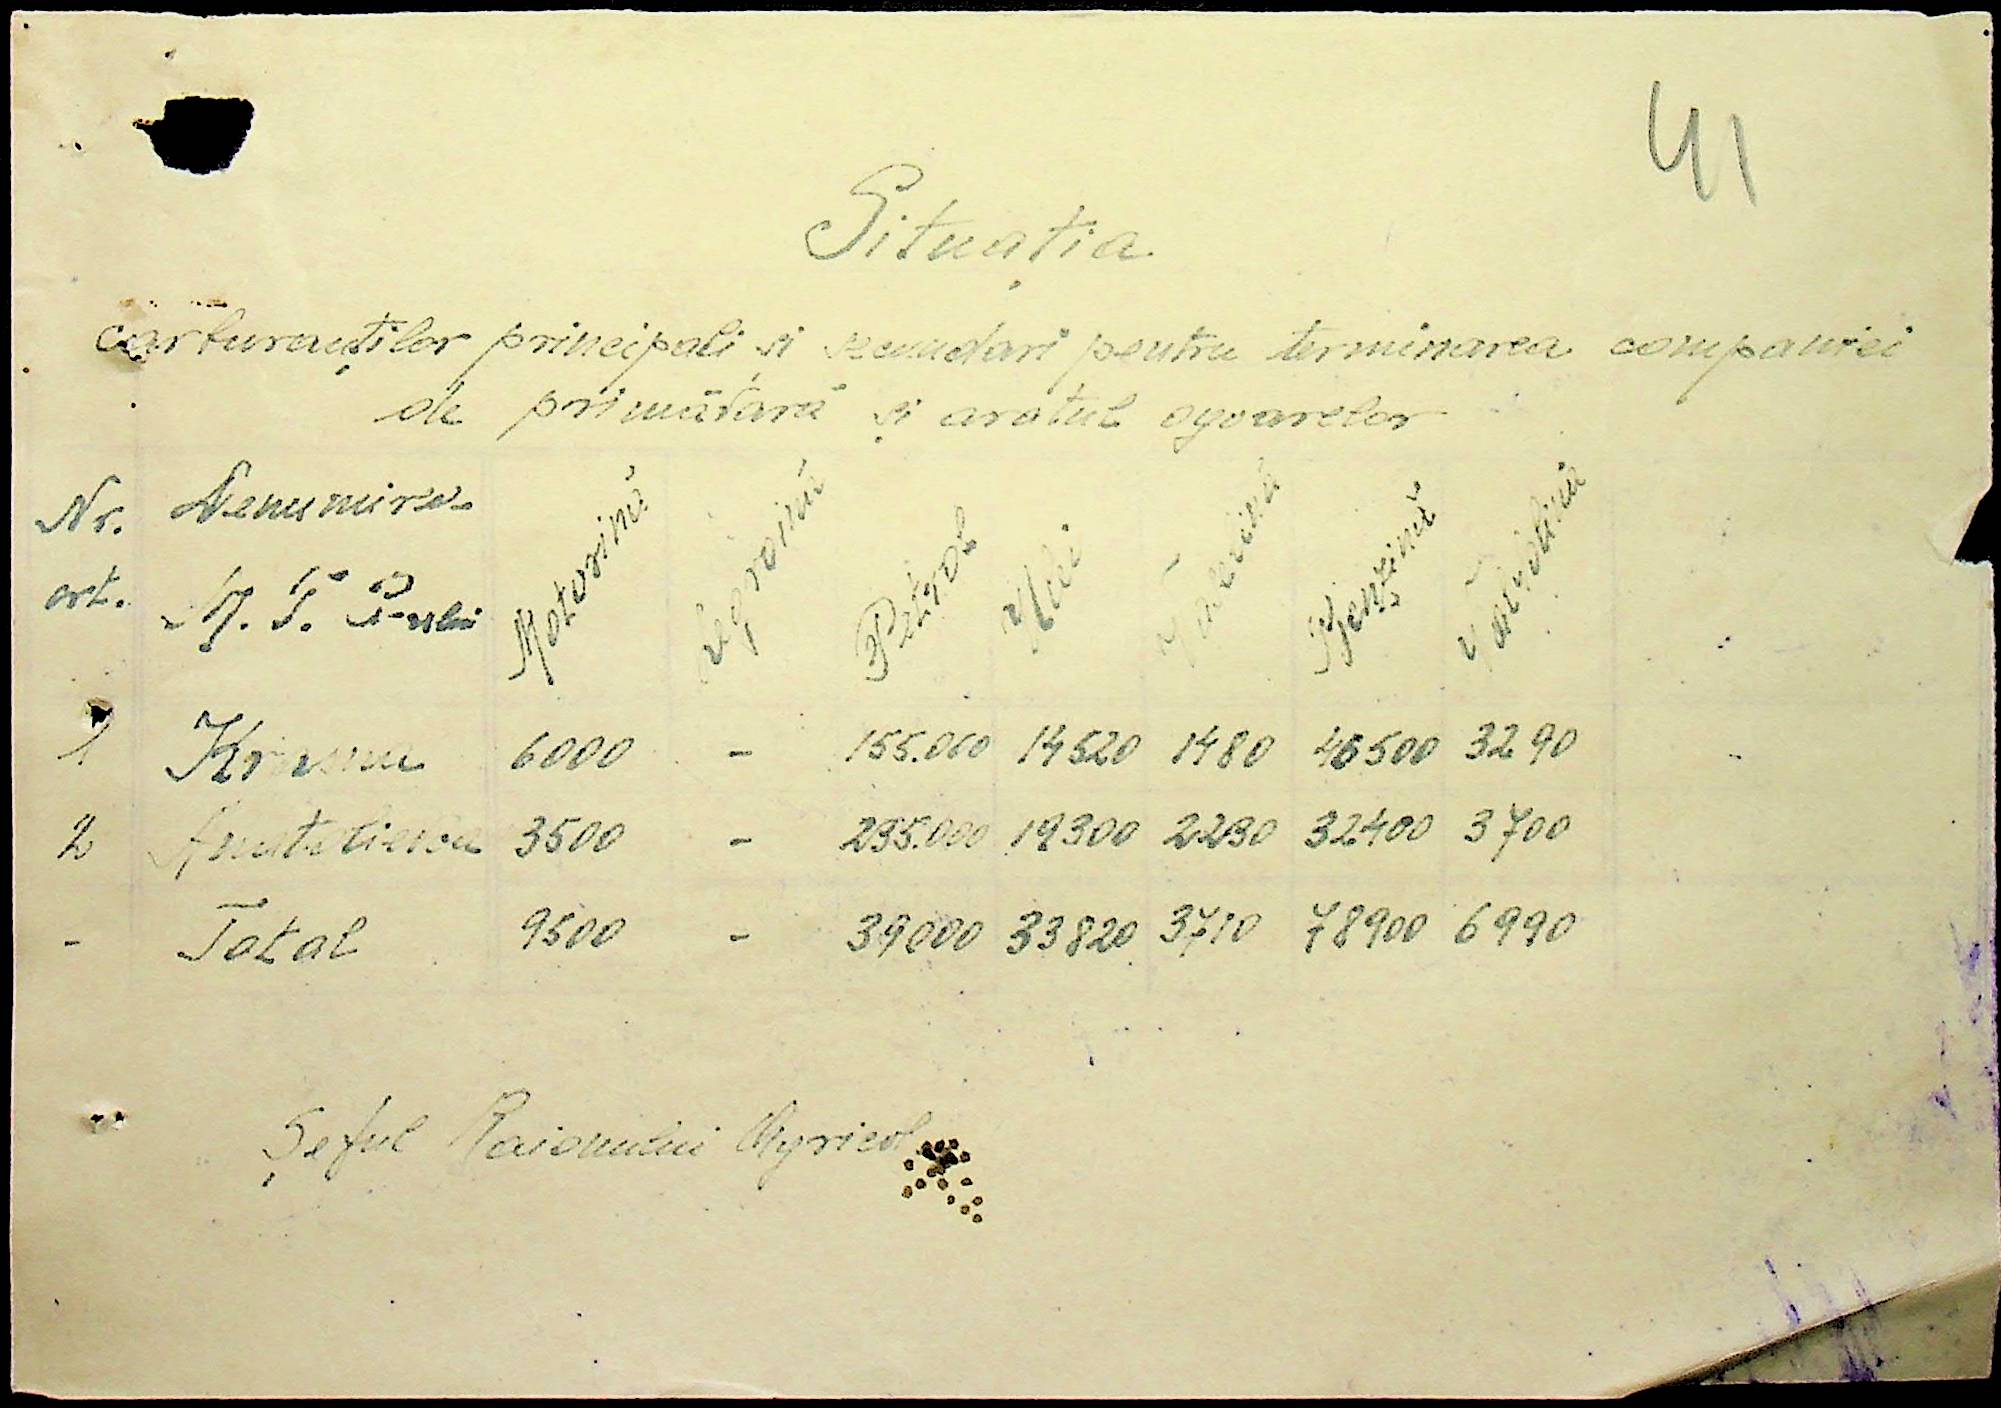 41
Situația
carburanților principali și secundari pentru terminarea companiei
de primăvară și aratul ogoarelor
Nr. ort. Denumirea M. T. P-ului Motorină Legroină Petrol Ulei Vaselină Benzină
1 6000 - 155.000 14520 1480 46500 3290 -
2 3500 - 235.000 19300 2230 32400 3700
- Total 9500 - 39000 33820 3710 78900 6990
Șeful Raionului Agricol